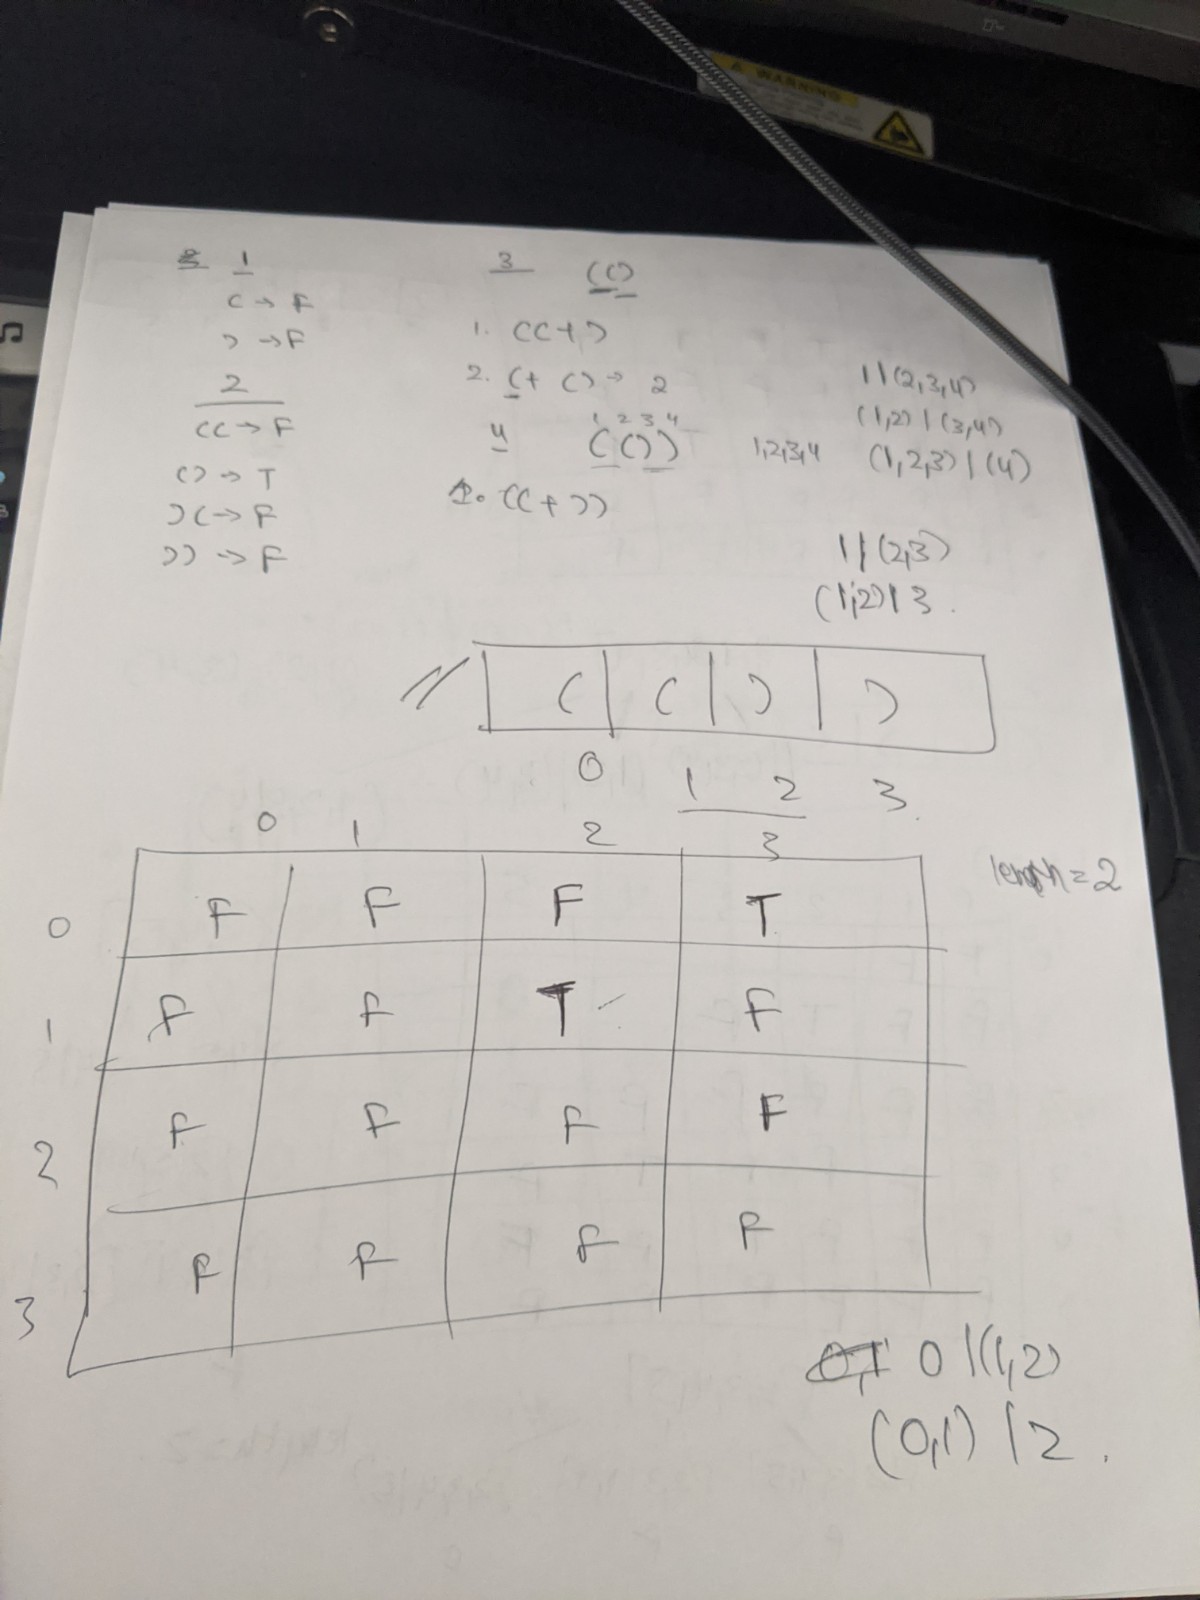 ⚠ WARNING
1
( → F
) → F
2
(( → F
() → T
)( → F
)) → F
3 (()
1. (( + )
2. ( + () → 2
1 2 3 4
4 (())
1. (( + ))
1 | (2,3,4)
(1,2) | (3,4)
1,2,3,4 (1,2,3) | (4)
1 | (2,3)
(1,2) | 3.
( ( ) )
0 1 2 3.
0 1 2 3
length = 2
0 F F F T
1 F F T F
2 F F F F
3 F F F F
0 | (1,2)
(0,1) | 2.